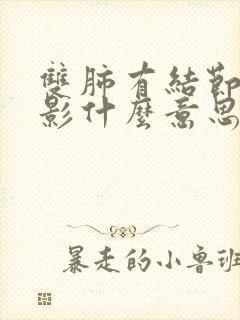 雙肺有結節
影什麼意思
暴走的小魯班